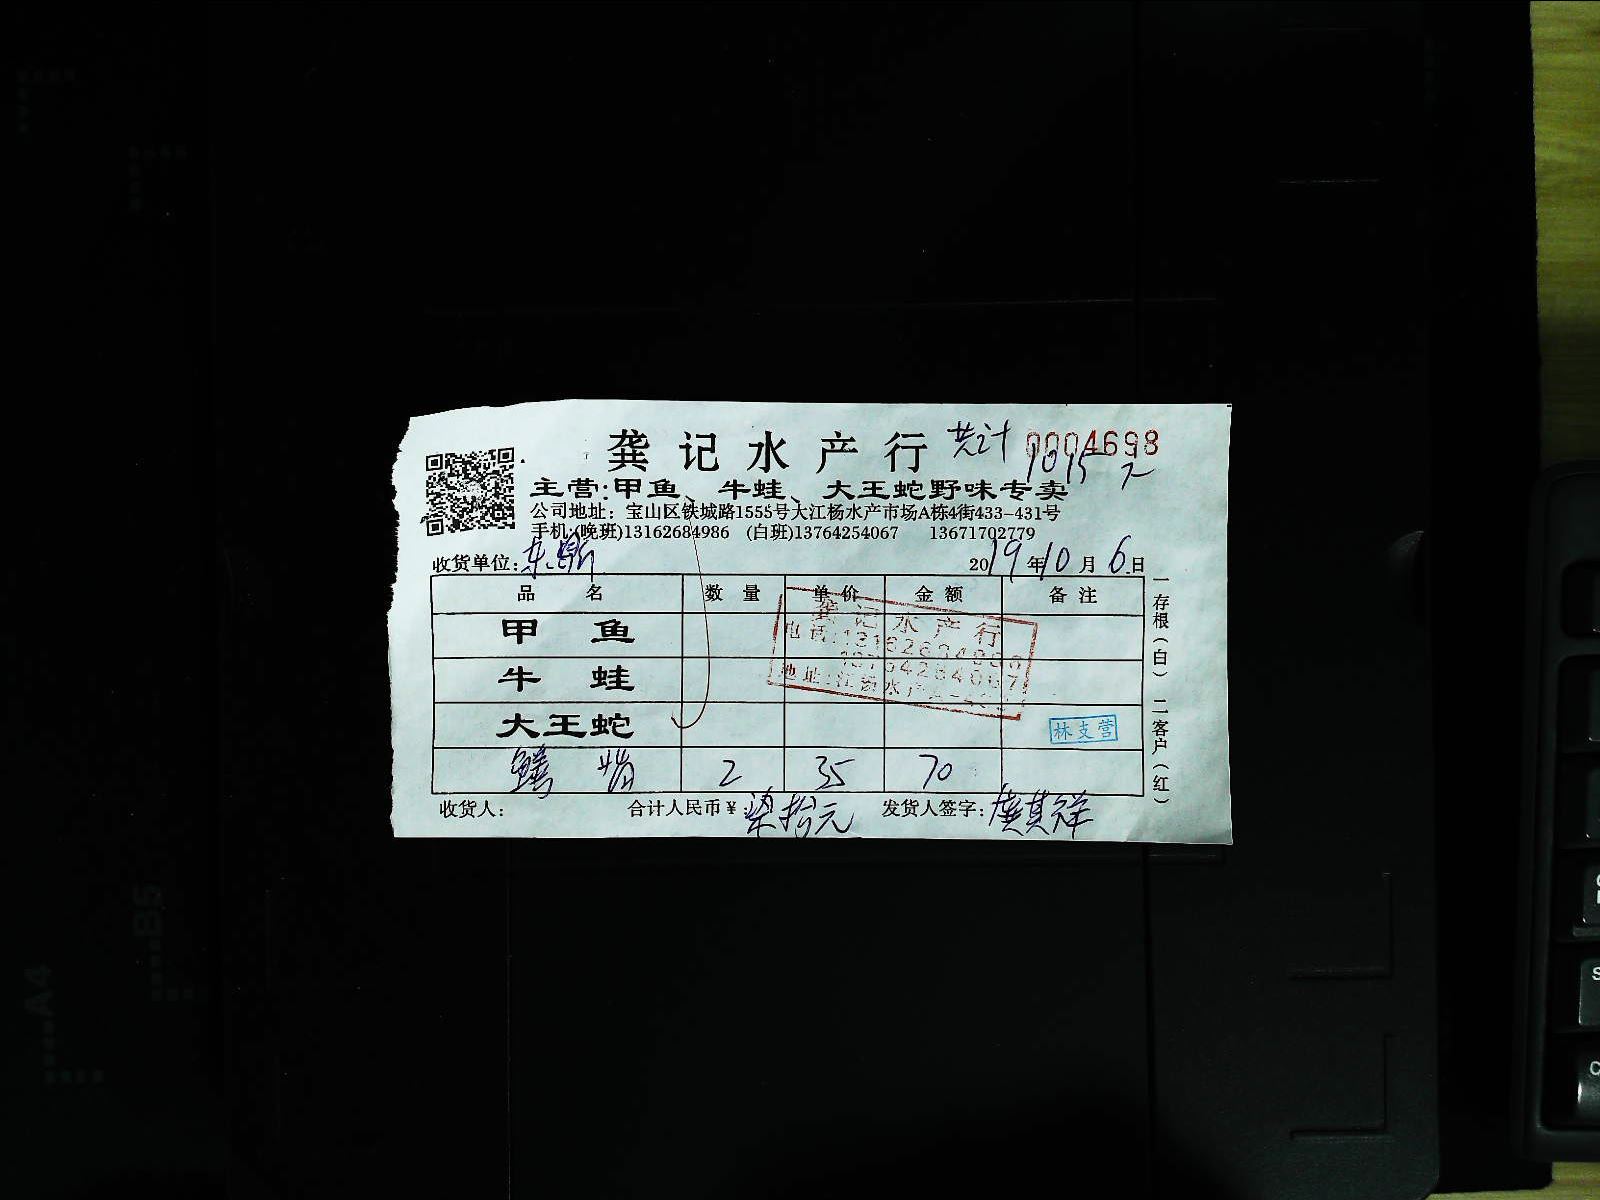 龚记水产行 共计 0004698
1015元
主营:甲鱼、牛蛙、大王蛇野味专卖
公司地址：宝山区铁城路1555号大江杨水产市场A栋4街433-431号
手机:(晚班)13162684986 (白班)13764254067 13671702779
收货单位: 2019年10月6日
品名 数量 单价 金额 备注
甲鱼
牛蛙
大王蛇
鳝 2 35 70
收货人: 合计人民币￥: 柒拾元 发货人签字:
龚记水产行
电话:13162684986
13764254067
地址:江杨水产
林支营
一存根(白) 二客户(红)
B5
A4